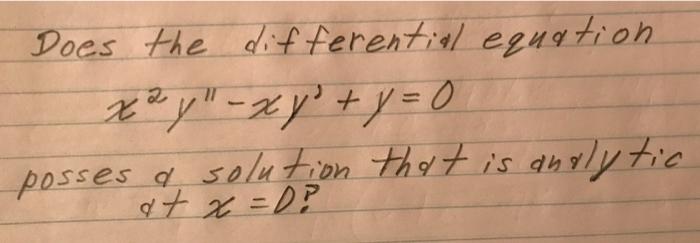 Does the differential equation
x²y" - xy' + y = 0
posses a solution that is analytic
at x = 0?